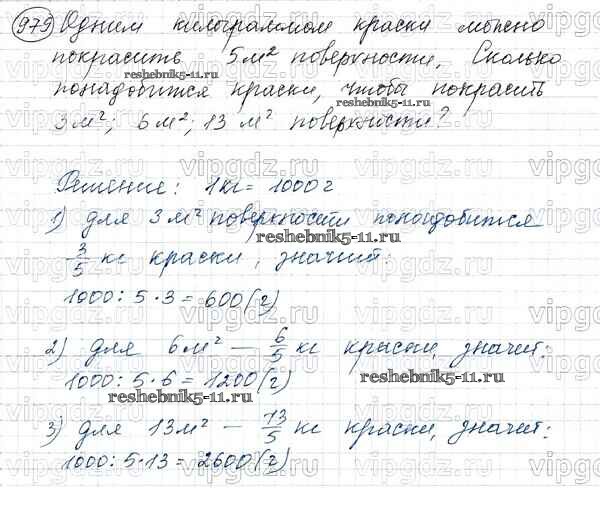 979 Одним килограммом краски можно
покрасить 5м² поверхности. Сколько
reshebnik5-11.ru
понадобится краски, чтобы покрасить
3м²; 6м²; 13м² поверхности?
Решение: 1кг = 1000г
1) для 3м² поверхности понадобится
reshebnik5-11.ru
3/5 кг краски, значит:
1000:5·3=600(г)
2) для 6м² – 6/5 кг краски, значит:
1000:5·6=1200(г)
reshebnik5-11.ru
3) для 13м² – 13/5 кг краски, значит:
1000:5·13=2600(г)
vipgdz.ru